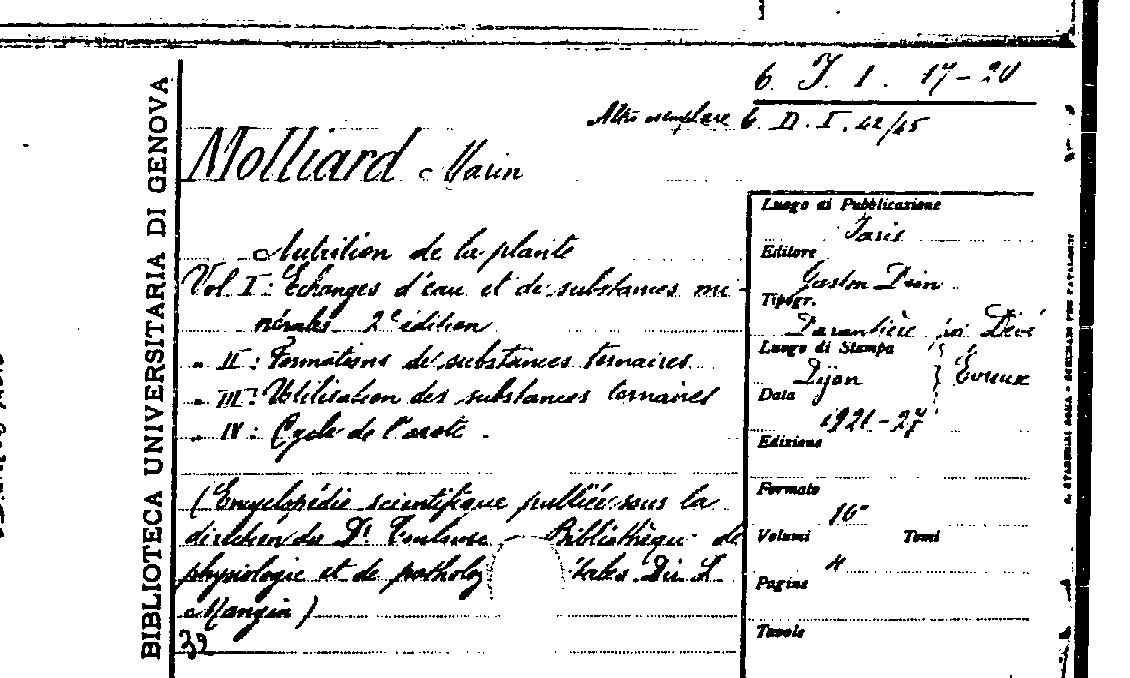 6. I. 1. 17-20
Altro esemplare 6. D. I. 42/45
BIBLIOTECA UNIVERSITARIA DI GENOVA
Molliard Marin
Nutrition de la plante
Vol. I: Echanges d'eau et de substances mi-
nérales 2e édition
" II: Formations de substances ternaires
" III: Utilisation des substances ternaires
" IV: Cycle de l'azote.
(Encyclopédie scientifique publiée sous la
direction du Dr. Toulouse Bibliothèque de
physiologie et de patholog tales Dir. L.
Mangin)
32
Luogo di Pubblicazione
Paris
Editore
Gaston Doin
Tipogr.
Darantière poi Dévé
Luogo di Stampa
Dijon } Evreux
Data
1921-27
Edizione
Formato
16°
Volumi Tomi
4
Pagine
Tavole